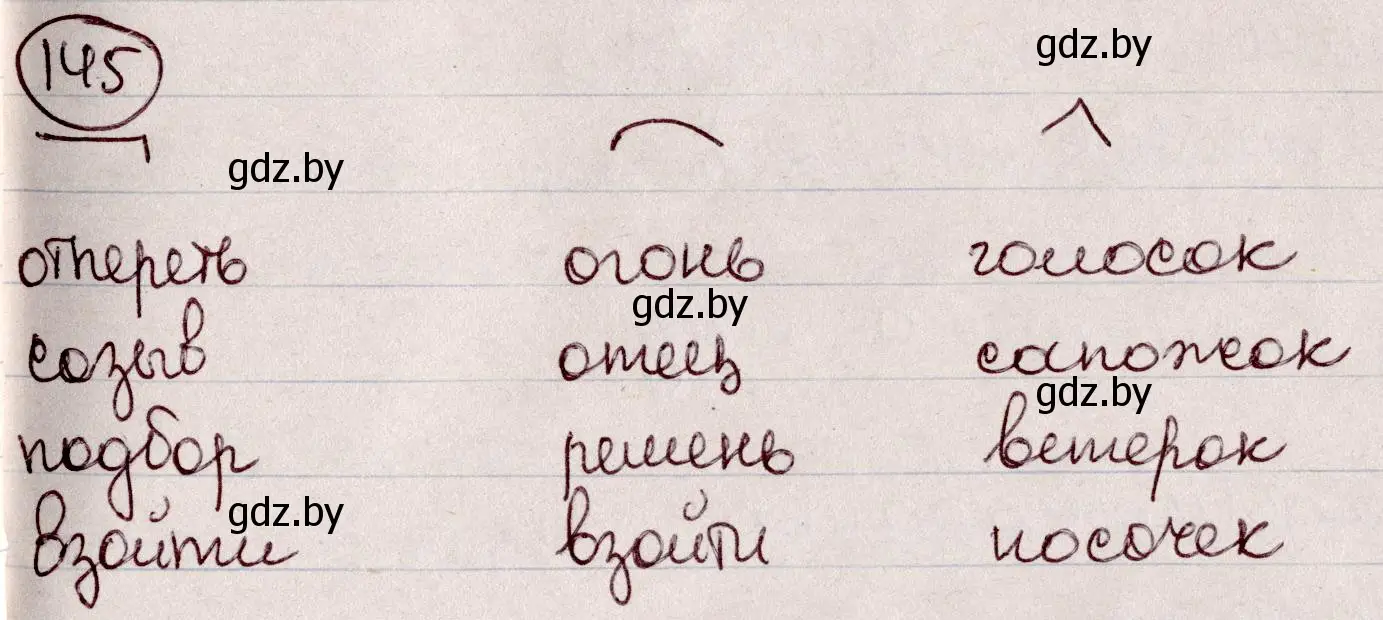 145
gdz.by
gdz.by
отпереть огонь голосок
gdz.by
созыв отец сапожок
gdz.by
подбор ремень ветерок
gdz.by
взойти взойти носочек